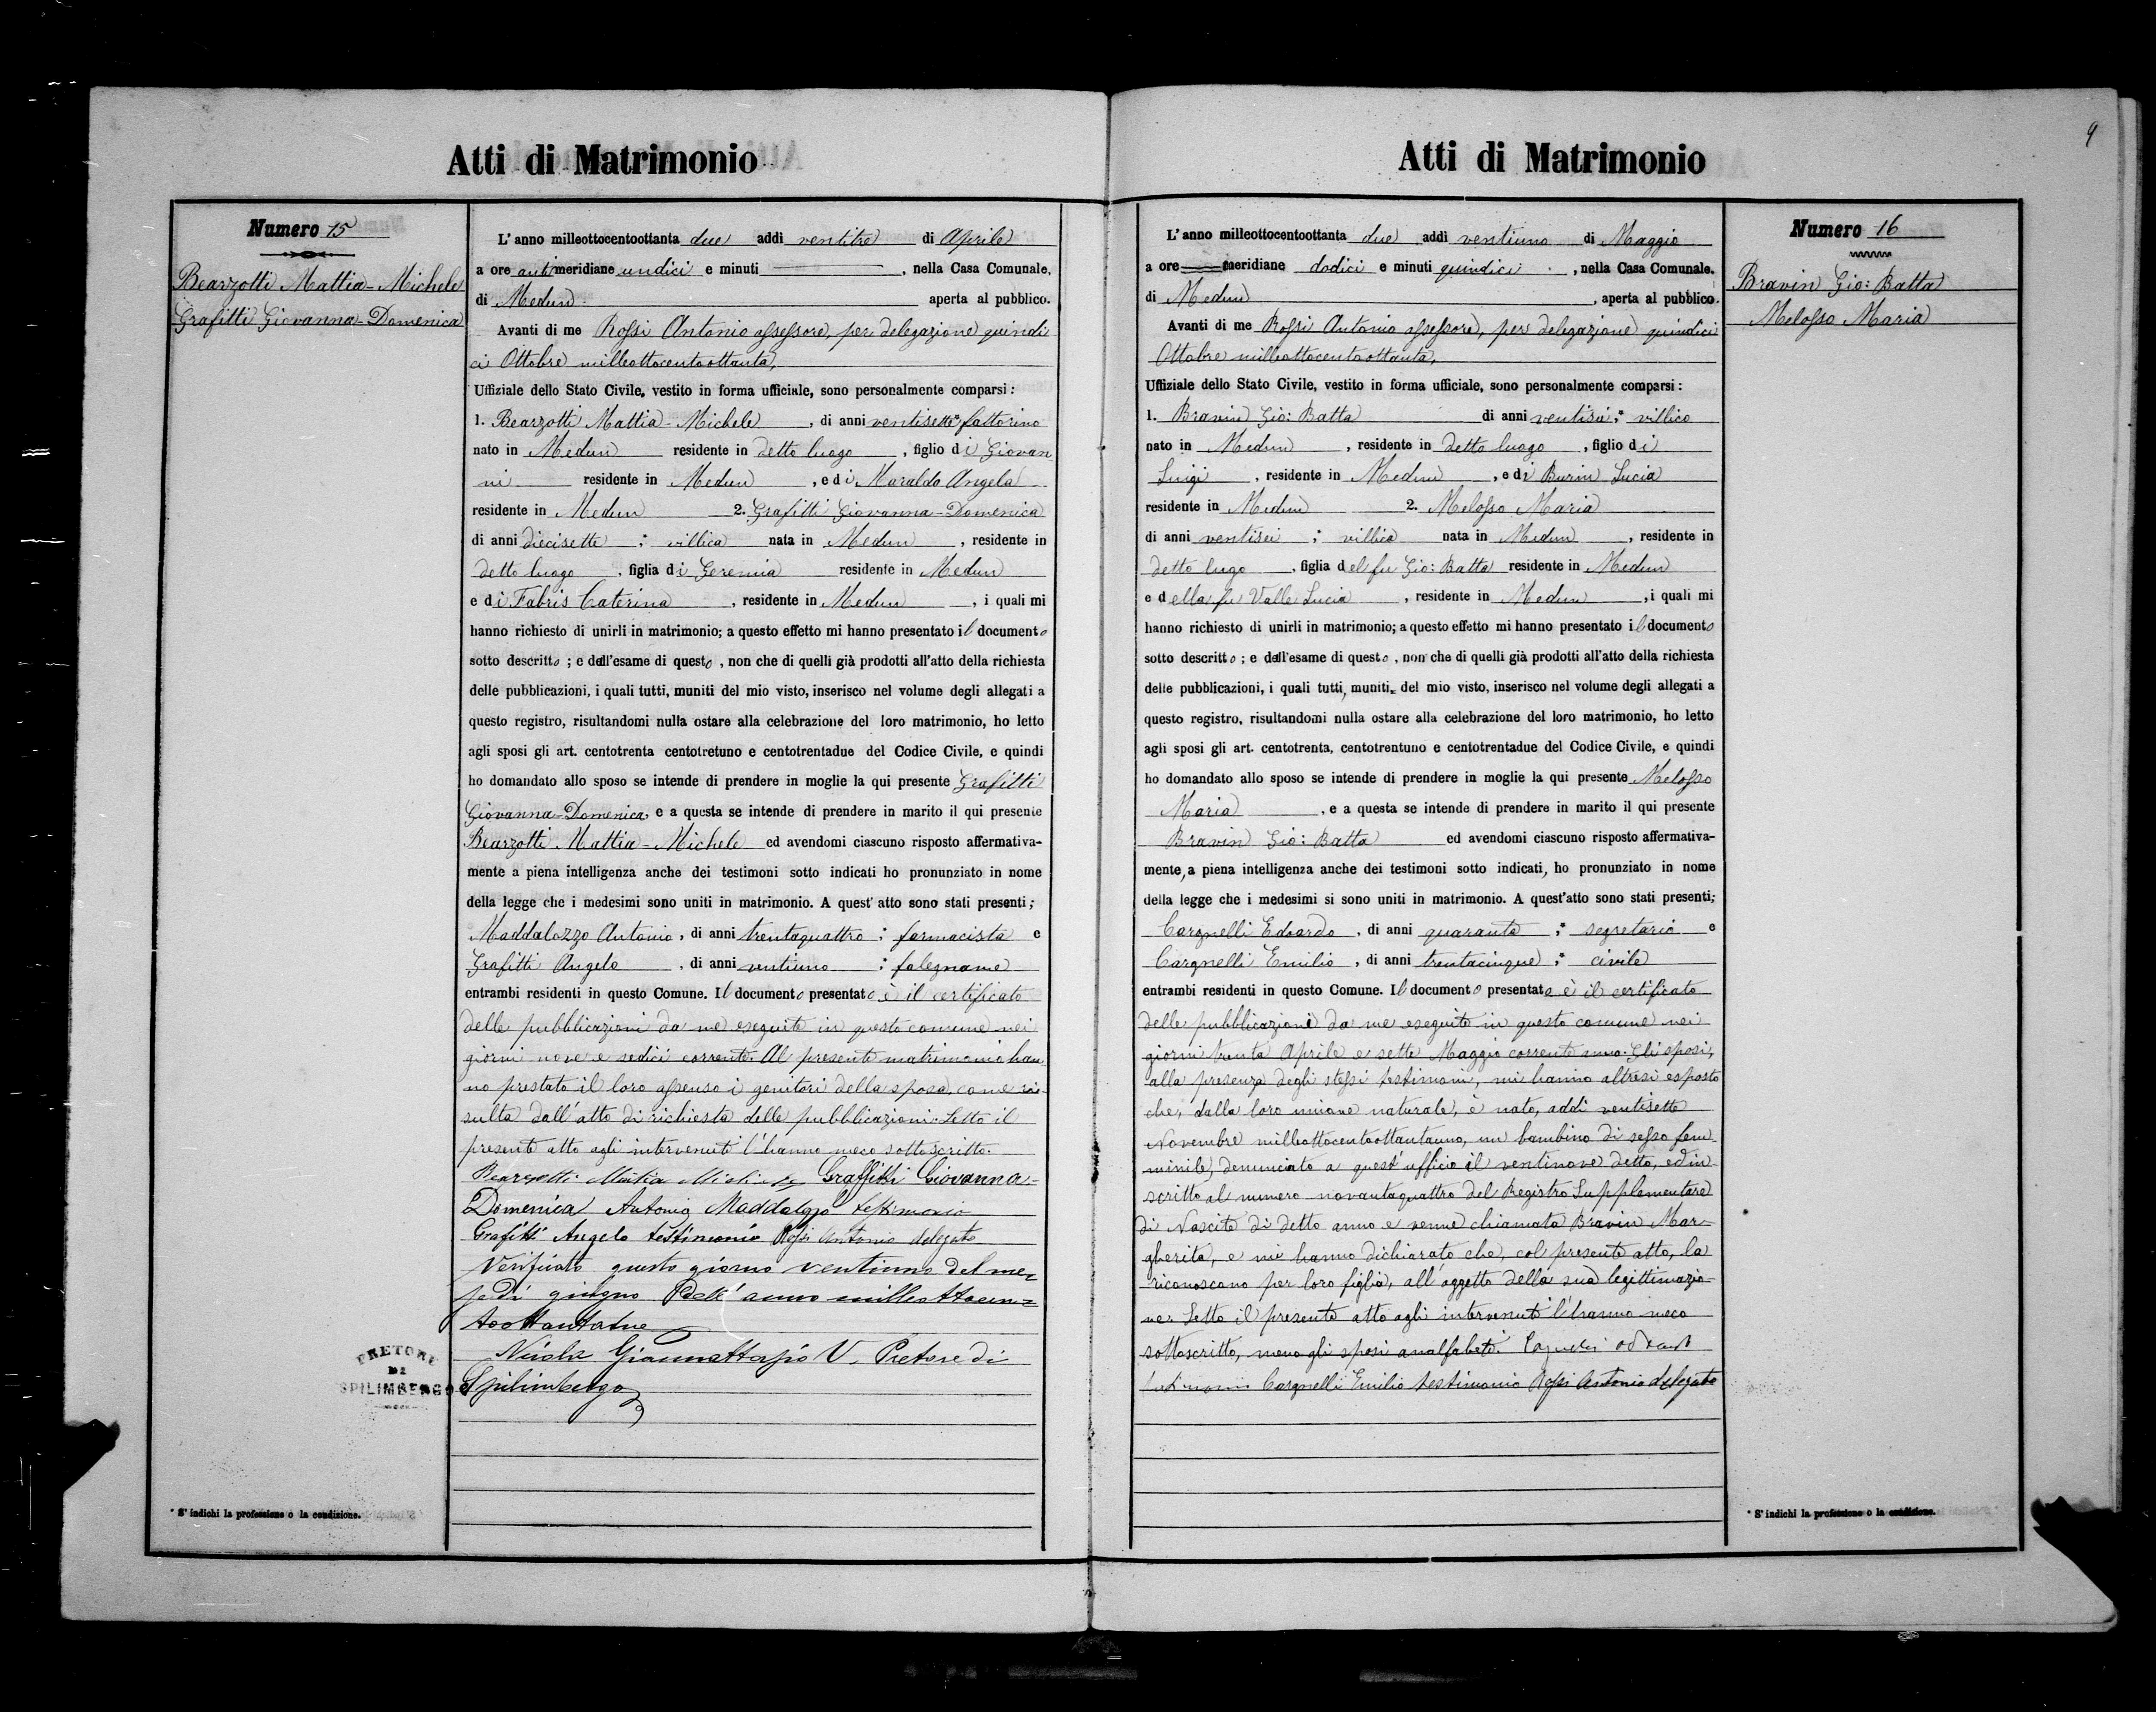 9
Atti di Matrimonio
Numero 15
Bearzotti Mattia-Michele
Grafitti Giovanna-Domenica
L'anno milleottocentoottanta due addi ventitre di Aprile
a ore antimeridiane undici e minuti , nella Casa Comunale,
di Medun aperta al pubblico.
Avanti di me Rossi Antonio assessore, per delegazione quindi
ci Ottobre milleottocentoottanta,
Uffiziale dello Stato Civile, vestito in forma ufficiale, sono personalmente comparsi:
1. Bearzotti Mattia-Michele , di anni ventisette* fattorino
nato in Medun residente in detto luogo , figlio di Giovan
ni residente in Medun , e di Maraldo Angela
residente in Medun 2. Grafitti Giovanna-Domenica
di anni diecisette ;* villica nata in Medun , residente in
detto luogo , figlia di Geremia residente in Medun
e di Fabris Caterina , residente in Medun , i quali mi
hanno richiesto di unirli in matrimonio; a questo effetto mi hanno presentato il documento
sotto descritto ; e dall'esame di questo , non che di quelli già prodotti all'atto della richiesta
delle pubblicazioni, i quali tutti, muniti del mio visto, inserisco nel volume degli allegati a
questo registro, risultandomi nulla ostare alla celebrazione del loro matrimonio, ho letto
agli sposi gli art. centotrenta centotretuno e centotrentadue del Codice Civile, e quindi
ho domandato allo sposo se intende di prendere in moglie la qui presente Grafitti
Giovanna-Domenica, e a questa se intende di prendere in marito il qui presente
Bearzotti Mattia-Michele ed avendomi ciascuno risposto affermativa-
mente a piena intelligenza anche dei testimoni sotto indicati ho pronunziato in nome
della legge che i medesimi sono uniti in matrimonio. A quest'atto sono stati presenti;
Maddalozzo Antonio, di anni trentaquattro ;* farmacista e
Grafitti Angelo , di anni ventiuno ;* falegname
entrambi residenti in questo Comune. Il documento presentato è il certificato
delle pubblicazioni da me eseguite in questo comune nei
giorni nove e sedici corrente. Al presente matrimonio han
no prestato il loro assenso i genitori della sposa, come ri-
sulta dall'atto di richiesta delle pubblicazioni. Letto il
presente atto agli intervenuti l'hanno meco sottoscritto.
Bearzotti Mattia Michele Graffitti Giovanna-
Domenica Antonio Maddalozzo testimonio
Grafitti Angelo testimonio Rossi Antonio delegato
Verificato questo giorno ventiuno del me-
se di giugno dell'anno milleottocen-
toottantadue
Nicola Giannattasio V. Pretore di
Spilimbergo
PRETORE
DI
SPILIMBERGO
* S'indichi la professione o la condizione.
Atti di Matrimonio
Numero 16
Bravin Gio: Batta
Melosso Maria
L'anno milleottocentoottanta due addi ventiuno di Maggio
a ore meridiane dodici e minuti quindici , nella Casa Comunale.
di Medun , aperta al pubblico.
Avanti di me Rossi Antonio assessore, per delegazione quindici
Ottobre milleottocentoottanta,
Uffiziale dello Stato Civile, vestito in forma ufficiale, sono personalmente comparsi:
1. Bravin Gio: Batta di anni ventisei ;* villico
nato in Medun , residente in detto luogo , figlio di
Luigi , residente in Medun , e di Burin Lucia
residente in Medun 2. Melosso Maria
di anni ventisei ;* villica nata in Medun , residente in
detto lugo , figlia del fu Gio: Batta residente in Medun
e della fu Valle Lucia , residente in Medun , i quali mi
hanno richiesto di unirli in matrimonio; a questo effetto mi hanno presentato il documento
sotto descritto ; e dall'esame di questo , non che di quelli già prodotti all'atto della richiesta
delle pubblicazioni, i quali tutti, muniti del mio visto, inserisco nel volume degli allegati a
questo registro, risultandomi nulla ostare alla celebrazione del loro matrimonio, ho letto
agli sposi gli art. centotrenta, centotrentuno e centotrentadue del Codice Civile, e quindi
ho domandato allo sposo se intende di prendere in moglie la qui presente Melosso
Maria , e a questa se intende di prendere in marito il qui presente
Bravin Gio: Batta ed avendomi ciascuno risposto affermativa-
mente, a piena intelligenza anche dei testimoni sotto indicati, ho pronunziato in nome
della legge che i medesimi si sono uniti in matrimonio. A quest'atto sono stati presenti;
Cargnelli Edoardo , di anni quaranta ;* segretario e
Cargnelli Emilio , di anni trentacinque ;* civile
entrambi residenti in questo Comune. Il documento presentato è il certificato
delle pubblicazioni da me eseguite in questo comune nei
giorni trenta Aprile e sette Maggio corrente anno. Gli sposi,
alla presenza degli stessi testimoni, mi hanno altresì esposto
che, dalla loro unione naturale, è nato, addi ventisette
Novembre milleottocentoottantauno, un bambino di sesso fem
minile, denunciato a quest'ufficio il ventinove detto, ed in-
scritto al numero novantaquattro del Registro Supplementare
di Nascite di detto anno e venne chiamata Bravin Mar-
gherita, e mi hanno dichiarato che, col presente atto, la
riconoscono per loro figlia, all'oggetto della sua legittimazio-
ne. Letto il presente atto agli intervenuti l'hanno meco
sottoscritto, meno gli sposi analfabeti.
testimonio Cargnelli Emilio testimonio Rossi Antonio delegato
* S'indichi la professione o la condizione.